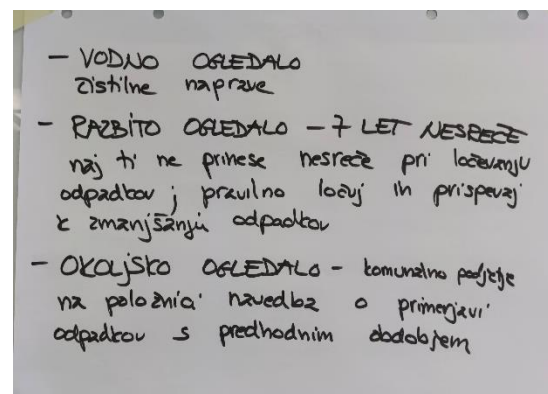 - VODNO OGLEDALO
čistilne naprave
- RAZBITO OGLEDALO - 7 LET NESREČE
naj ti ne prinese nesreče pri ločevanju
odpadkov ; pravilno ločuj in prispevaj
k zmanjšanju odpadkov
- OKOLJSKO OGLEDALO - komunalno podjetje
na položnici navedba o primerjavi
odpadkov s predhodnim obdobjem